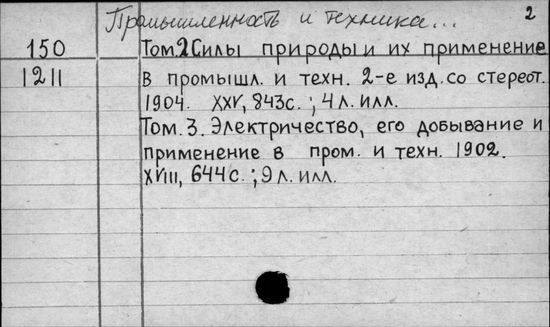 Промышленность и техника... 2
150 Том.2 Силы природы и их применение
1211 в промышл. и техн. 2-е изд. со стереот.
1904. XXV, 843с. ; 4 л. илл.
Том. 3. Электричество, его добывание и
применение в пром. и техн. 1902.
XVIII, 644с. ; 9 л. илл.